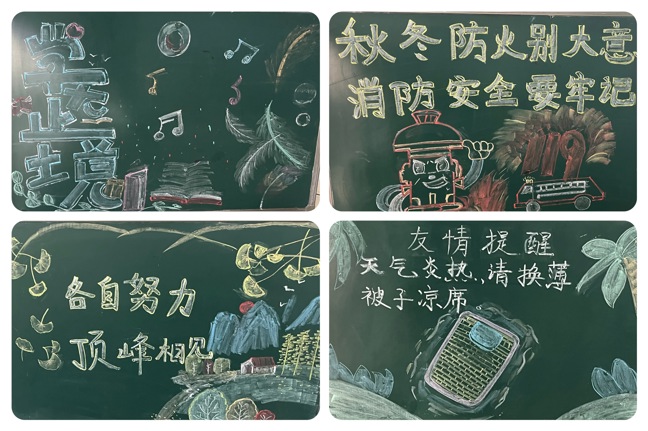 学无止境
秋冬防火别大意
消防安全要牢记
119
各自努力
顶峰相见
友情提醒
天气炎热,请换薄
被子凉席